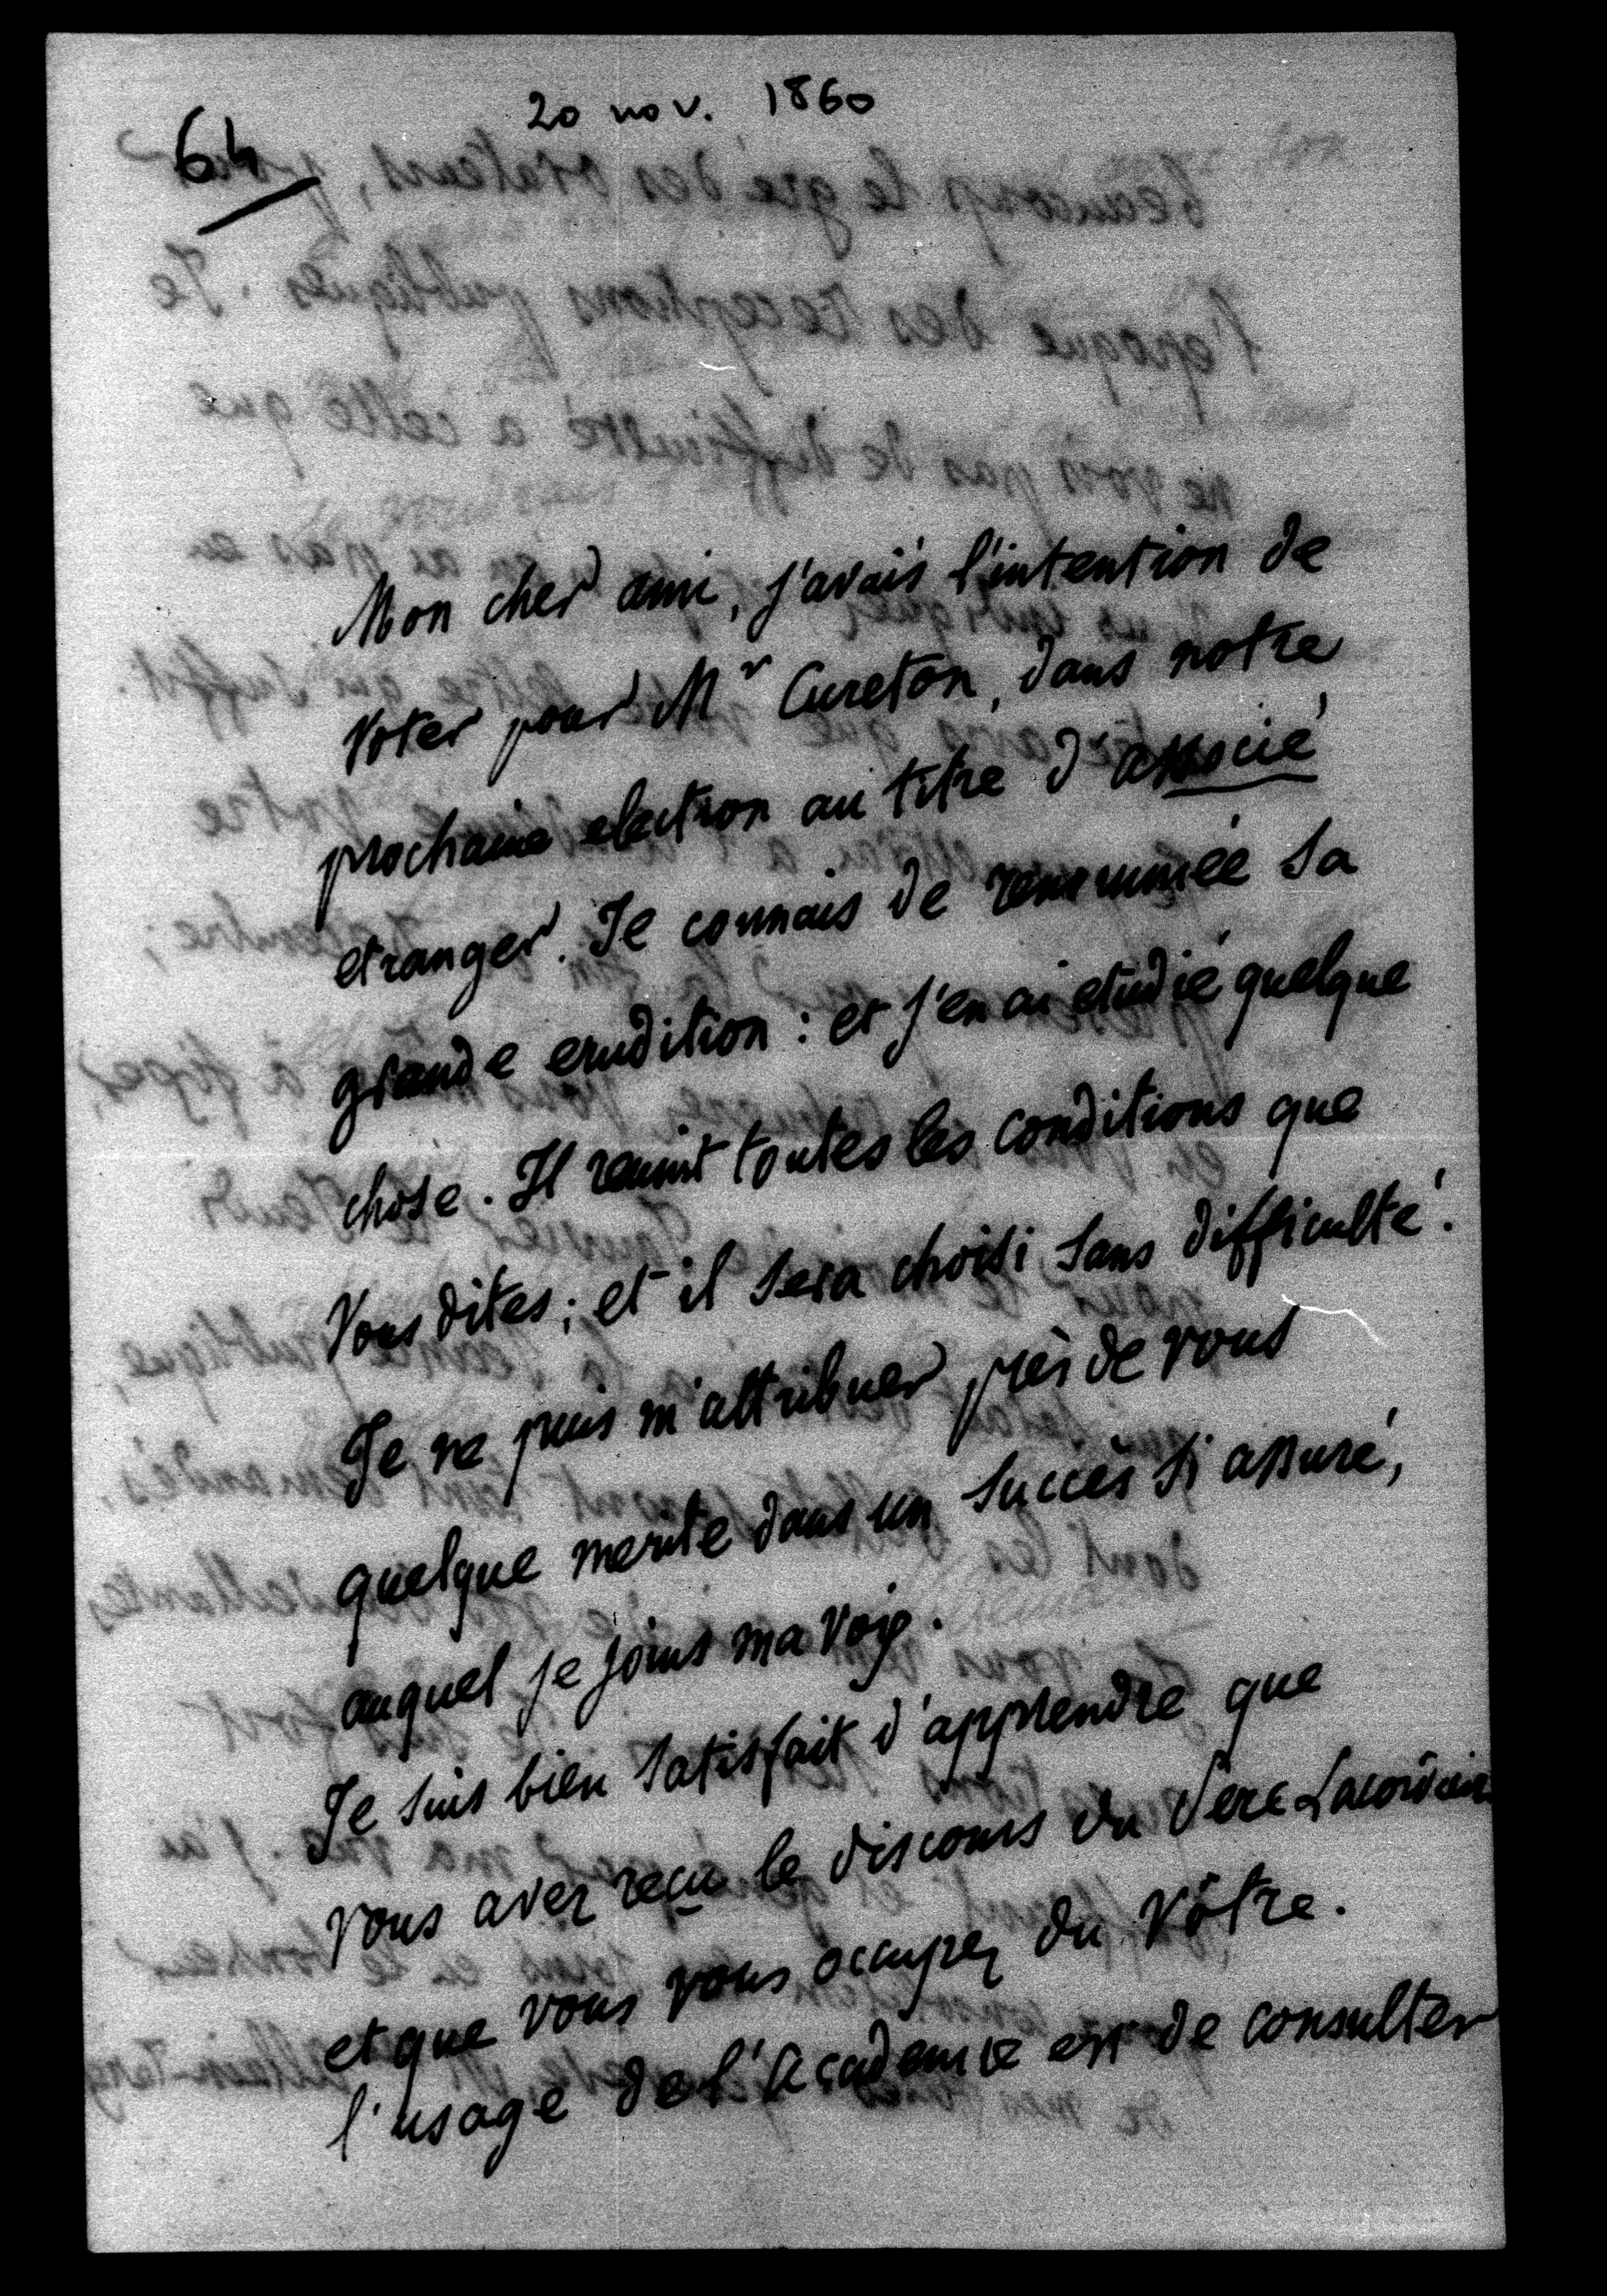 20 nov. 1860
64
Mon cher ami, j'avais l'intention de
voter pour Mr Cureton, dans notre
prochaine election au titre d'associé
etranger. Je connais de renommée sa
grande erudition : et j'en ai etudié quelque
chose. Il reunit toutes les conditions que
vous dites ; et il sera choisi sans difficulté.
Je ne puis m'attribuer près de vous
quelque merite dans un succès si assuré,
auquel je joins ma voix.
Je suis bien satisfait d'apprendre que
vous avez reçu le discours du Père Lacordaire
et que vous vous occupez du vôtre.
l'usage de l'Academie est de consulter